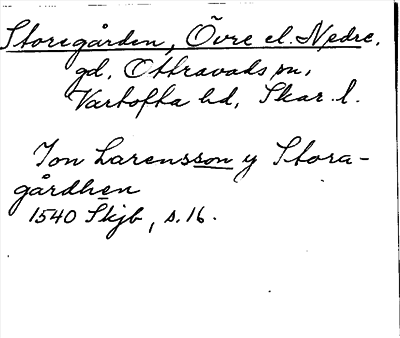 Storegården, Övre el. Nedre,
gd, Ottravads sn,
Vartofta hd, Skar. l.
Jon Larensson y Stora-
gårdhen
1540 Skjb, s. 16.